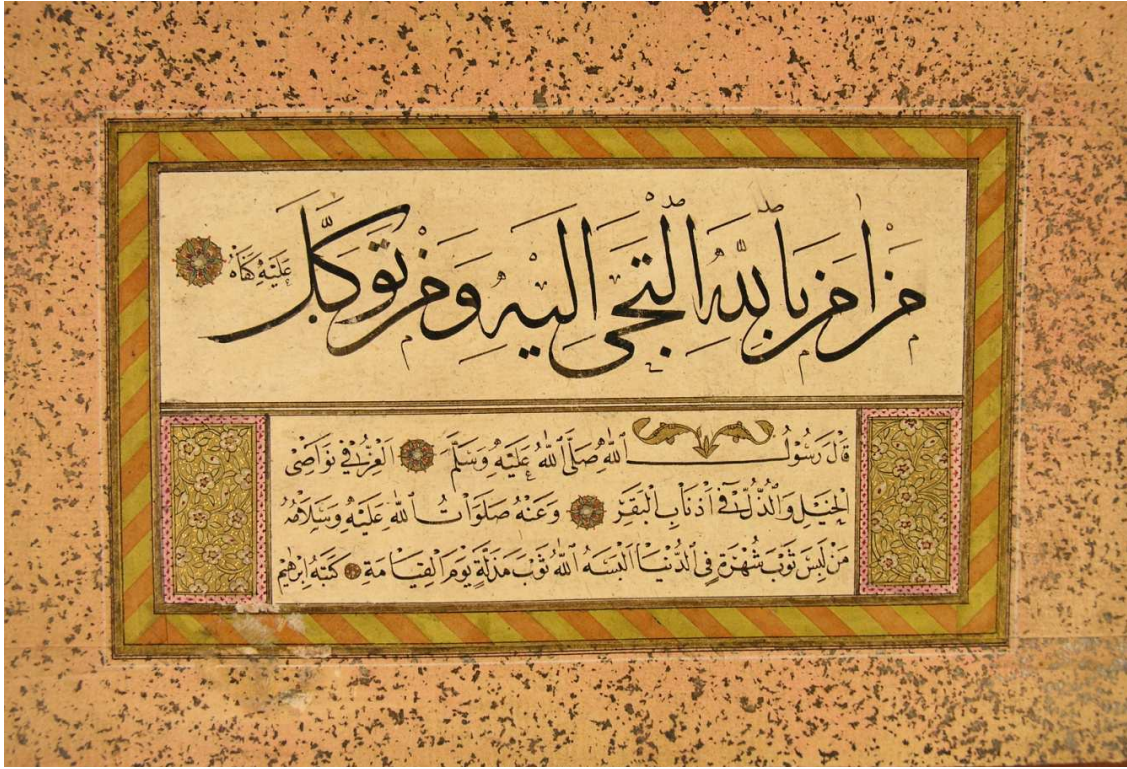 مَنْ اٰمَنَ بِاللهِ الْتَجٰى اِلَيْهِ وَمَنْ تَوَكَّلَ عَلَيْهِ كَفَاهُ
قَالَ رَسُولُ اللهِ صَلَّى اللهُ عَلَيْهِ وَسَلَّمَ الْعِزُّ فِي نَوَاصِي
الْخَيْلِ وَالذُّلُّ فِي اَذْنَابِ الْبَقَرِ وَعَنْهُ صَلَوَاتُ اللهِ عَلَيْهِ وَسَلَامُهُ
مَنْ لَبِسَ ثَوْبَ شُهْرَةٍ فِي الدُّنْيَا اَلْبَسَهُ اللهُ ثَوْبَ مَذَلَّةٍ يَوْمَ الْقِيَامَةِ كَتَبَهُ اِبْرٰهِيم